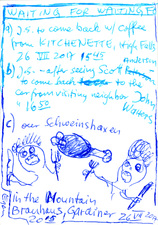 WAITING FOR WAITING
a) J.S. to come back w/ coffee
from KITCHENETTE, High Falls
26 VII 2017 1545
b) J.S. - after seeing Scott Anderson
to come back to the
car from visiting neighbor John
Waters
1650
c) our Schweinshaxen
In the Mountain
Brauhaus, Gardiner
2018 26 VII 2017